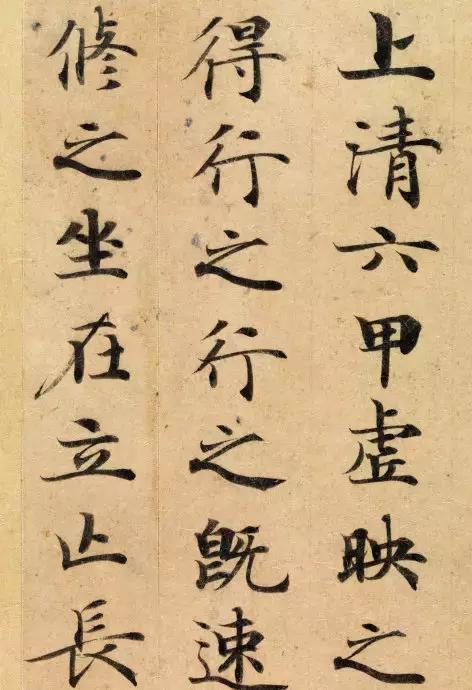 上清六甲虛映之
得行之行之既速
修之坐在立亡長